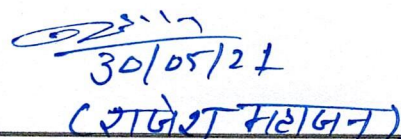 30/05/21
(राजेश महाजन)